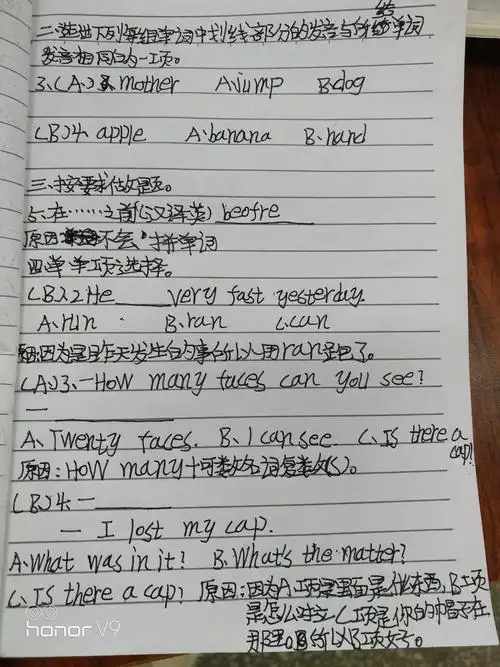 二、选出下列每组单词中划线部分的发音与所给单词
发音相同的一项。
3.(A) mother A.jump B.dog
(B)4. apple A.banana B.hand
三、按要求做题。
5.在……之前(汉译英) beofre
原因 不会 拼单词
四、单项选择。
(B)2.He ______ very fast yesterday.
A.run B.ran C.can
原因:因为是昨天发生的事所以用ran
(A)3.—How many faces can you see?
—
A.Twenty faces. B.I can see. C.Is there a cap?
原因:HOW many+可数名词复数(s)。
(B)4.—
— I lost my cap.
A.What was in it? B.What's the matter?
C.Is there a cap? 原因:因为A项是里面是什么东西,B项
是怎么 C项是你的帽子在
那里。所以B项 。
honor V9